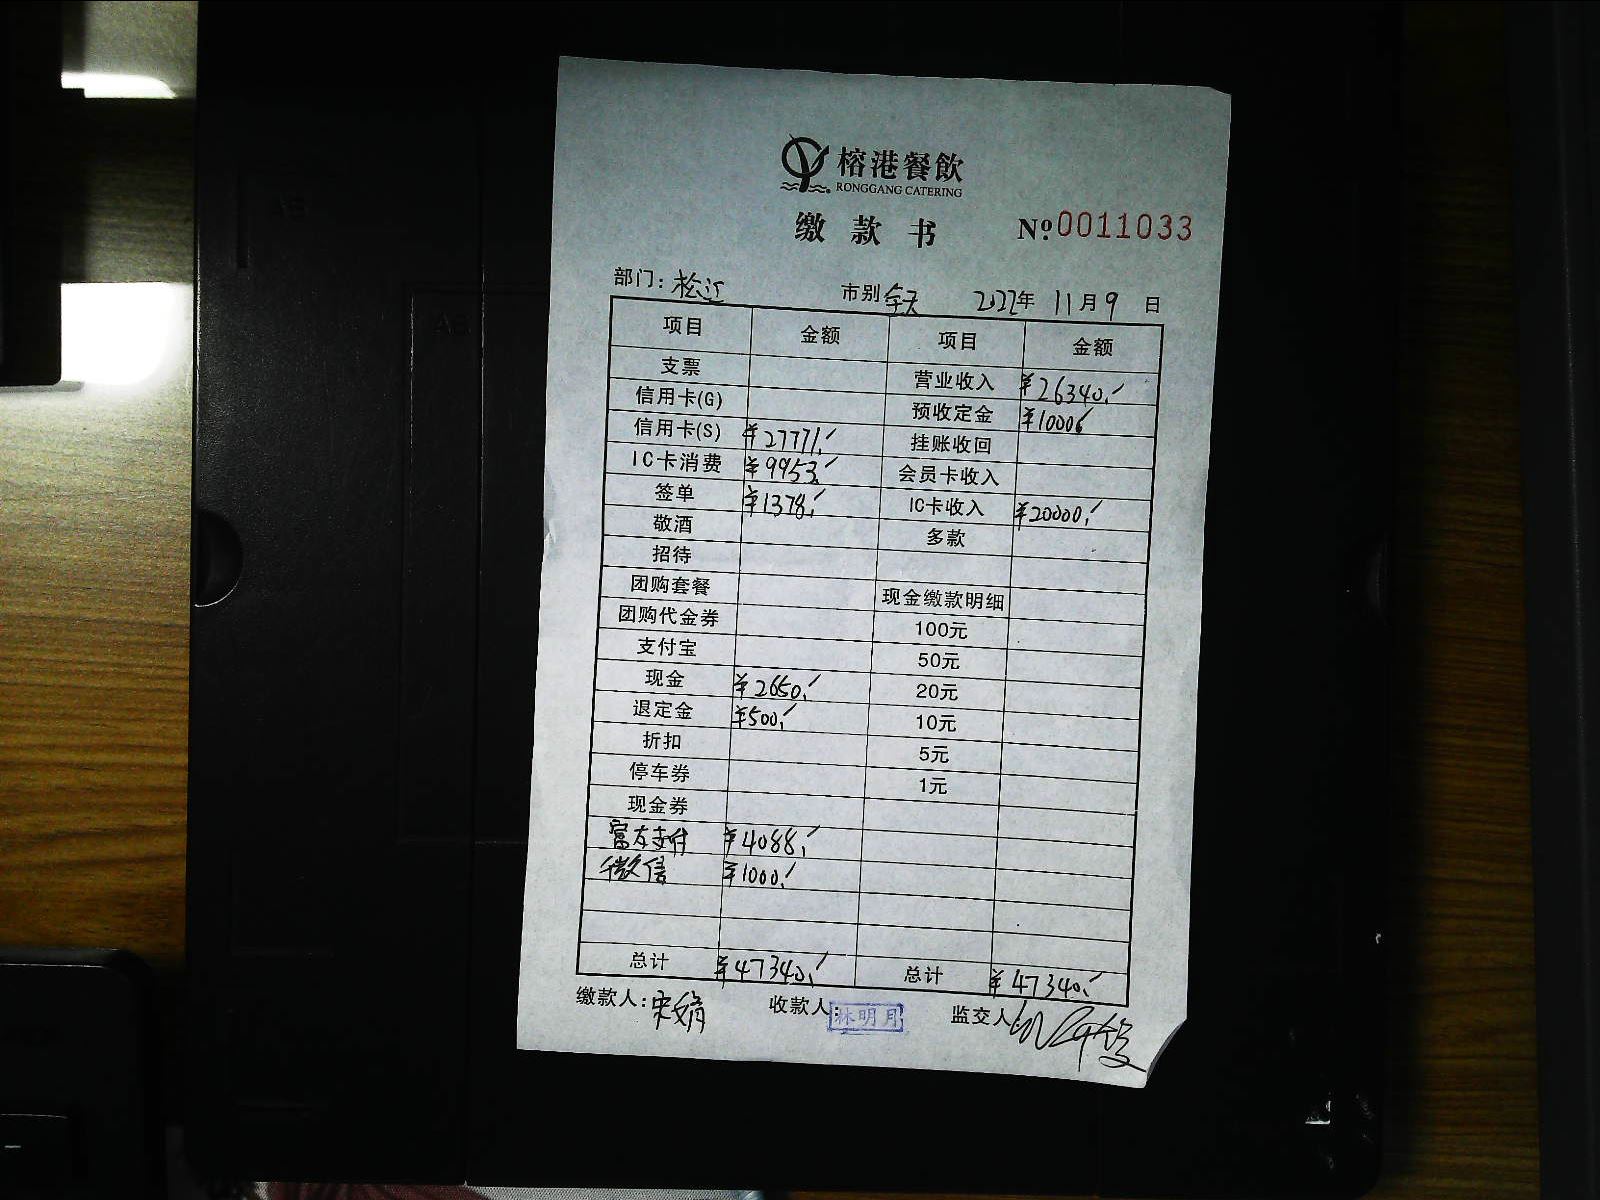 榕港餐飲
RONGGANG CATERING
缴款书 No.0011033
部门：松江 市别 全天 2022年 11月9日
项目 金额 项目 金额
支票 营业收入 ¥26340.
信用卡(G) 预收定金 ¥1000
信用卡(S) ¥27771. 挂账收回
IC卡消费 ¥9953. 会员卡收入
签单 ¥1378. IC卡收入 ¥20000.
敬酒 多款
招待
团购套餐 现金缴款明细
团购代金券 100元
支付宝 50元
现金 ¥2650. 20元
退定金 ¥500. 10元
折扣 5元
停车券 1元
现金券
富友支付 ¥4088.
微信 ¥1000.
总计 ¥47340. 总计 ¥47340.
缴款人：宋娟 收款人：林明月 监交人
A5